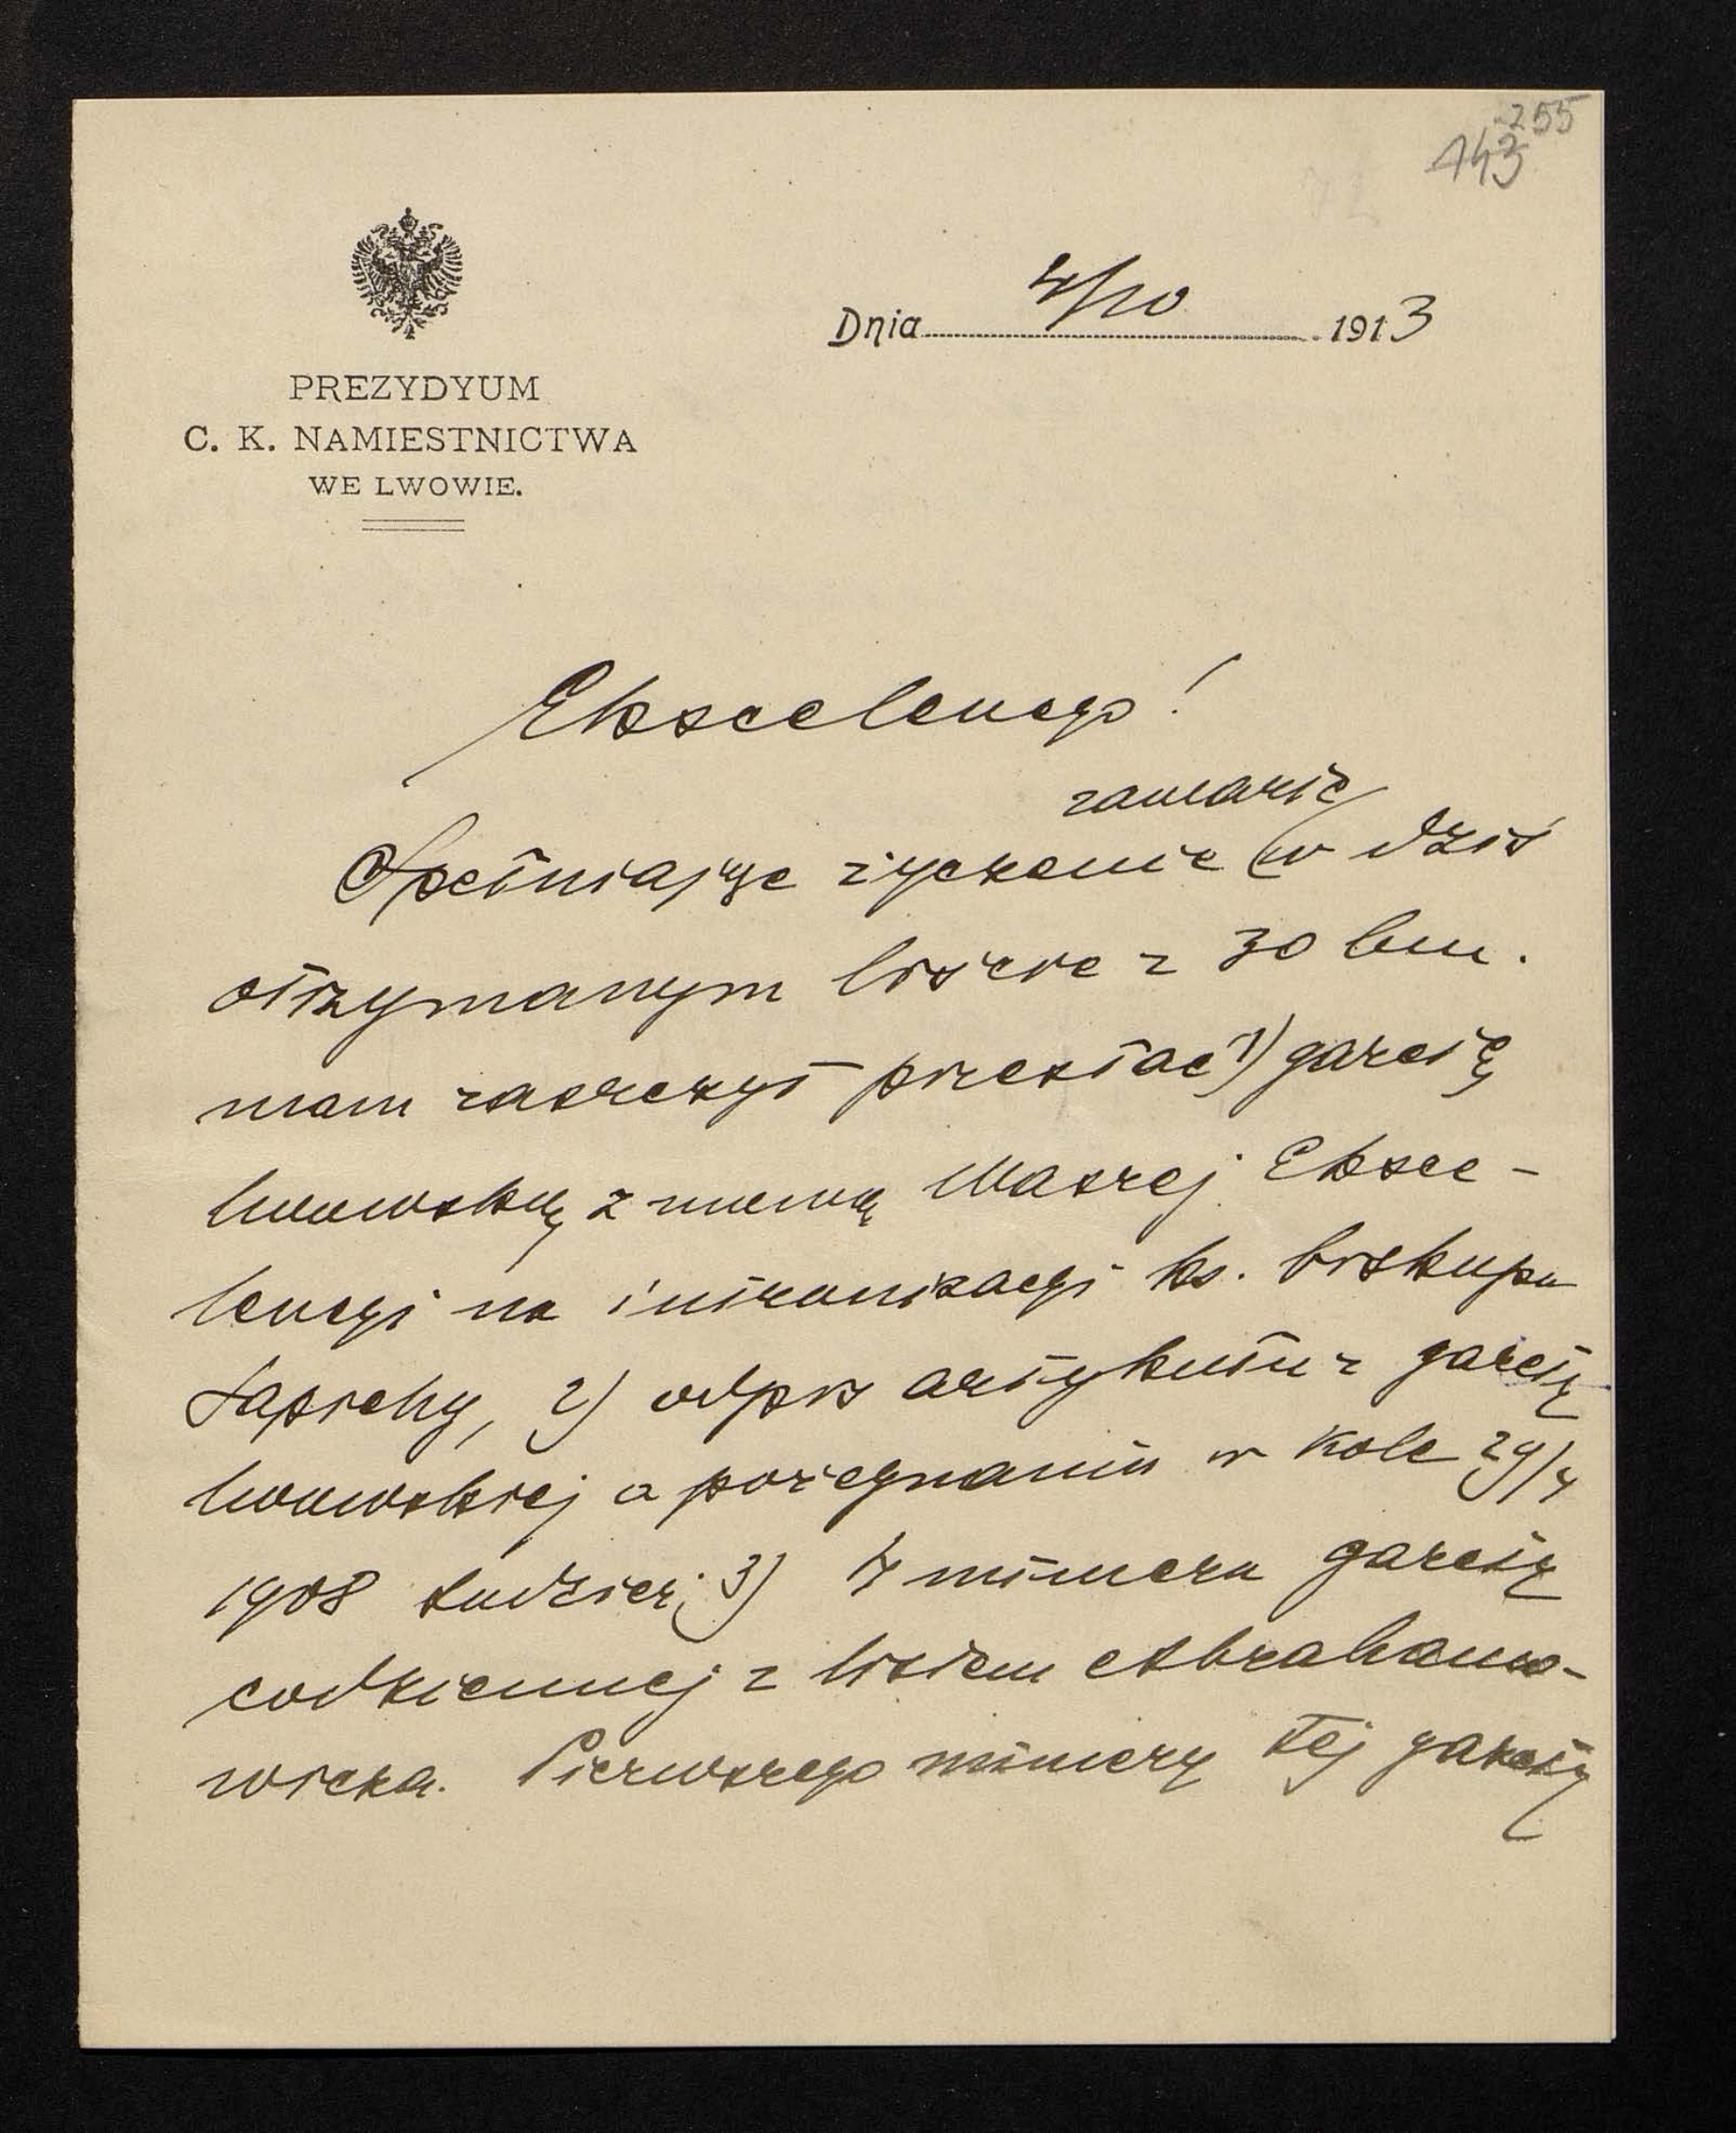 255
143
Dnia 4/10 1913
PREZYDYUM
C. K. NAMIESTNICTWA
WE LWOWIE.
Ekscelencyo!
zawarte
Spełniając życzenie w dziś
otrzymanym liście z 30 bm.
mam zaszczyt przesłać 1) gazetę
lwowską z mową Waszej Eksce-
lencyi na intronizacyi ks. biskupa
Sapiehy, 2) odpis artykułu z gazety
lwowskiej o pożegnaniu w Kole 29/4
1908 tudzież 3) numera gazety
codziennej z listem Abrahamo-
wicza. Pierwszego numeru tej gazety